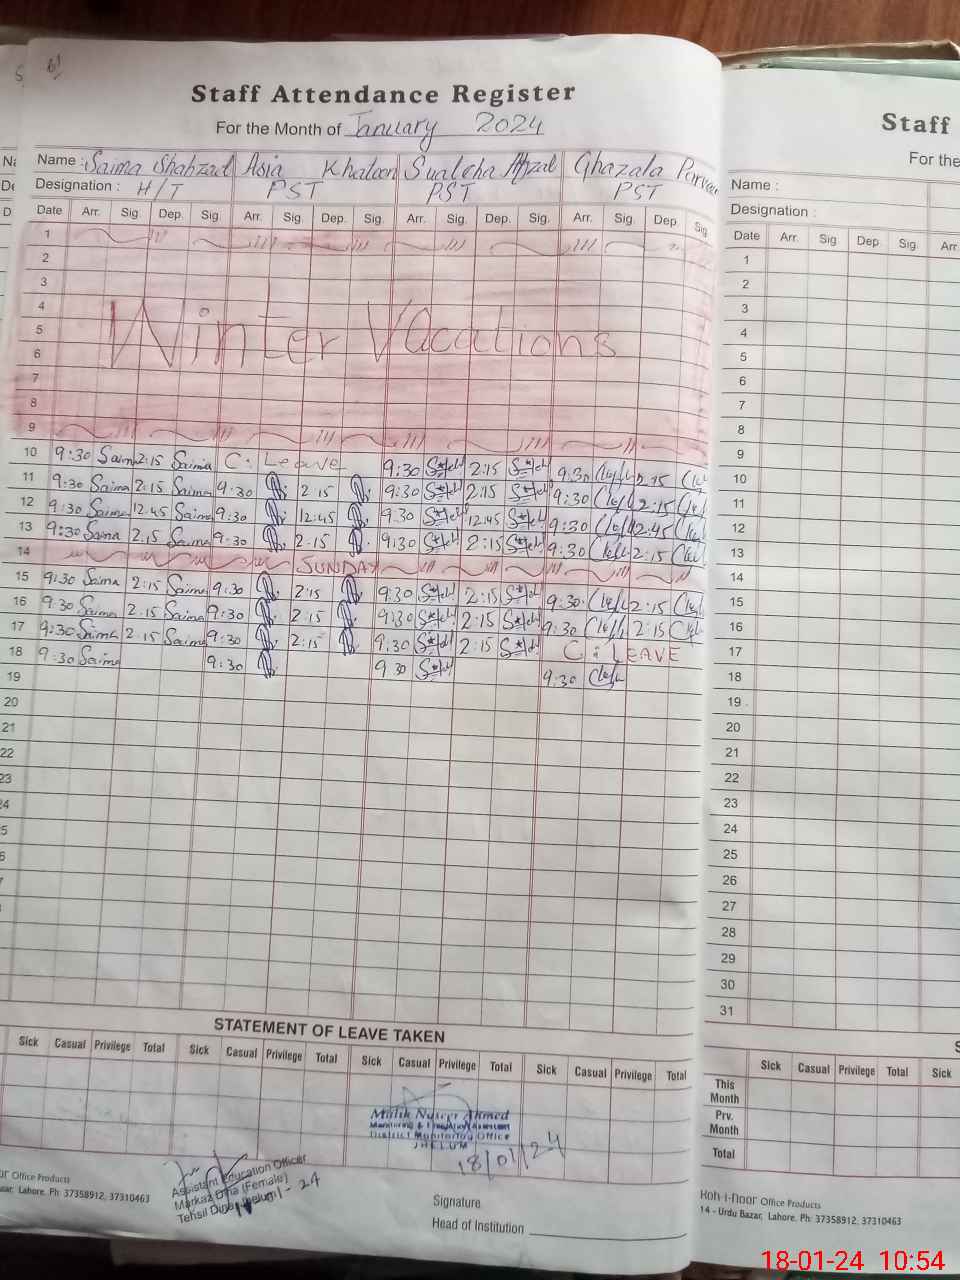 Staff Attendance Register
For the Month of January 2024
Name : Saima Shahzad Asia Khatoon Ghazala Parveen
Designation : H/T PST PST PST
Date Arr. Sig. Dep. Sig. Arr. Sig. Dep. Sig. Arr. Sig. Dep. Sig. Arr. Sig. Dep. Sig.
1
2
3
4
Winter Vacations
5
6
7
8
9
10 9:30 Saima 2:15 Saima C: Leave 9:30 2:15 9:30 2:15
11 9:30 Saima 2:15 Saima 9:30 2:15 9:30 2:15 9:30 2:15
12 9:30 Saima 12:45 Saima 9:30 12:45 9:30 12:45 9:30 12:45
13 9:30 Saima 2:15 Saima 9:30 2:15 9:30 2:15 9:30 2:15
14 SUNDAY
15 9:30 Saima 2:15 Saima 9:30 2:15 9:30 2:15 9:30 2:15
16 9:30 Saima 2:15 Saima 9:30 2:15 9:30 2:15 9:30 2:15
17 9:30 Saima 2:15 Saima 9:30 2:15 9:30 2:15 C: LEAVE
18 9:30 Saima 9:30 9:30 9:30
19
20
21
22
23
24
STATEMENT OF LEAVE TAKEN
Sick Casual Privilege Total Sick Casual Privilege Total Sick Casual Privilege Total Sick Casual Privilege Total
Malik Naseer Ahmed
Monitoring & Evaluation Assistant
District Monitoring Office
JHELUM
18/01/24
Assistant Education Officer
Markaz Dina (Female)
Tehsil Dina (Jhelum)
Signature
Head of Institution
Office Products
Lahore. Ph: 37358912, 37310463
Staff
For the
Name :
Designation :
Date Arr. Sig Dep. Sig. Arr.
1
2
3
4
5
6
7
8
9
10
11
12
13
14
15
16
17
18
19
20
21
22
23
24
25
26
27
28
29
30
31
Sick Casual Privilege Total Sick
This Month
Prv. Month
Total
Koh-i-noor Office Products
14 - Urdu Bazar, Lahore. Ph: 37358912, 37310463
18-01-24 10:54